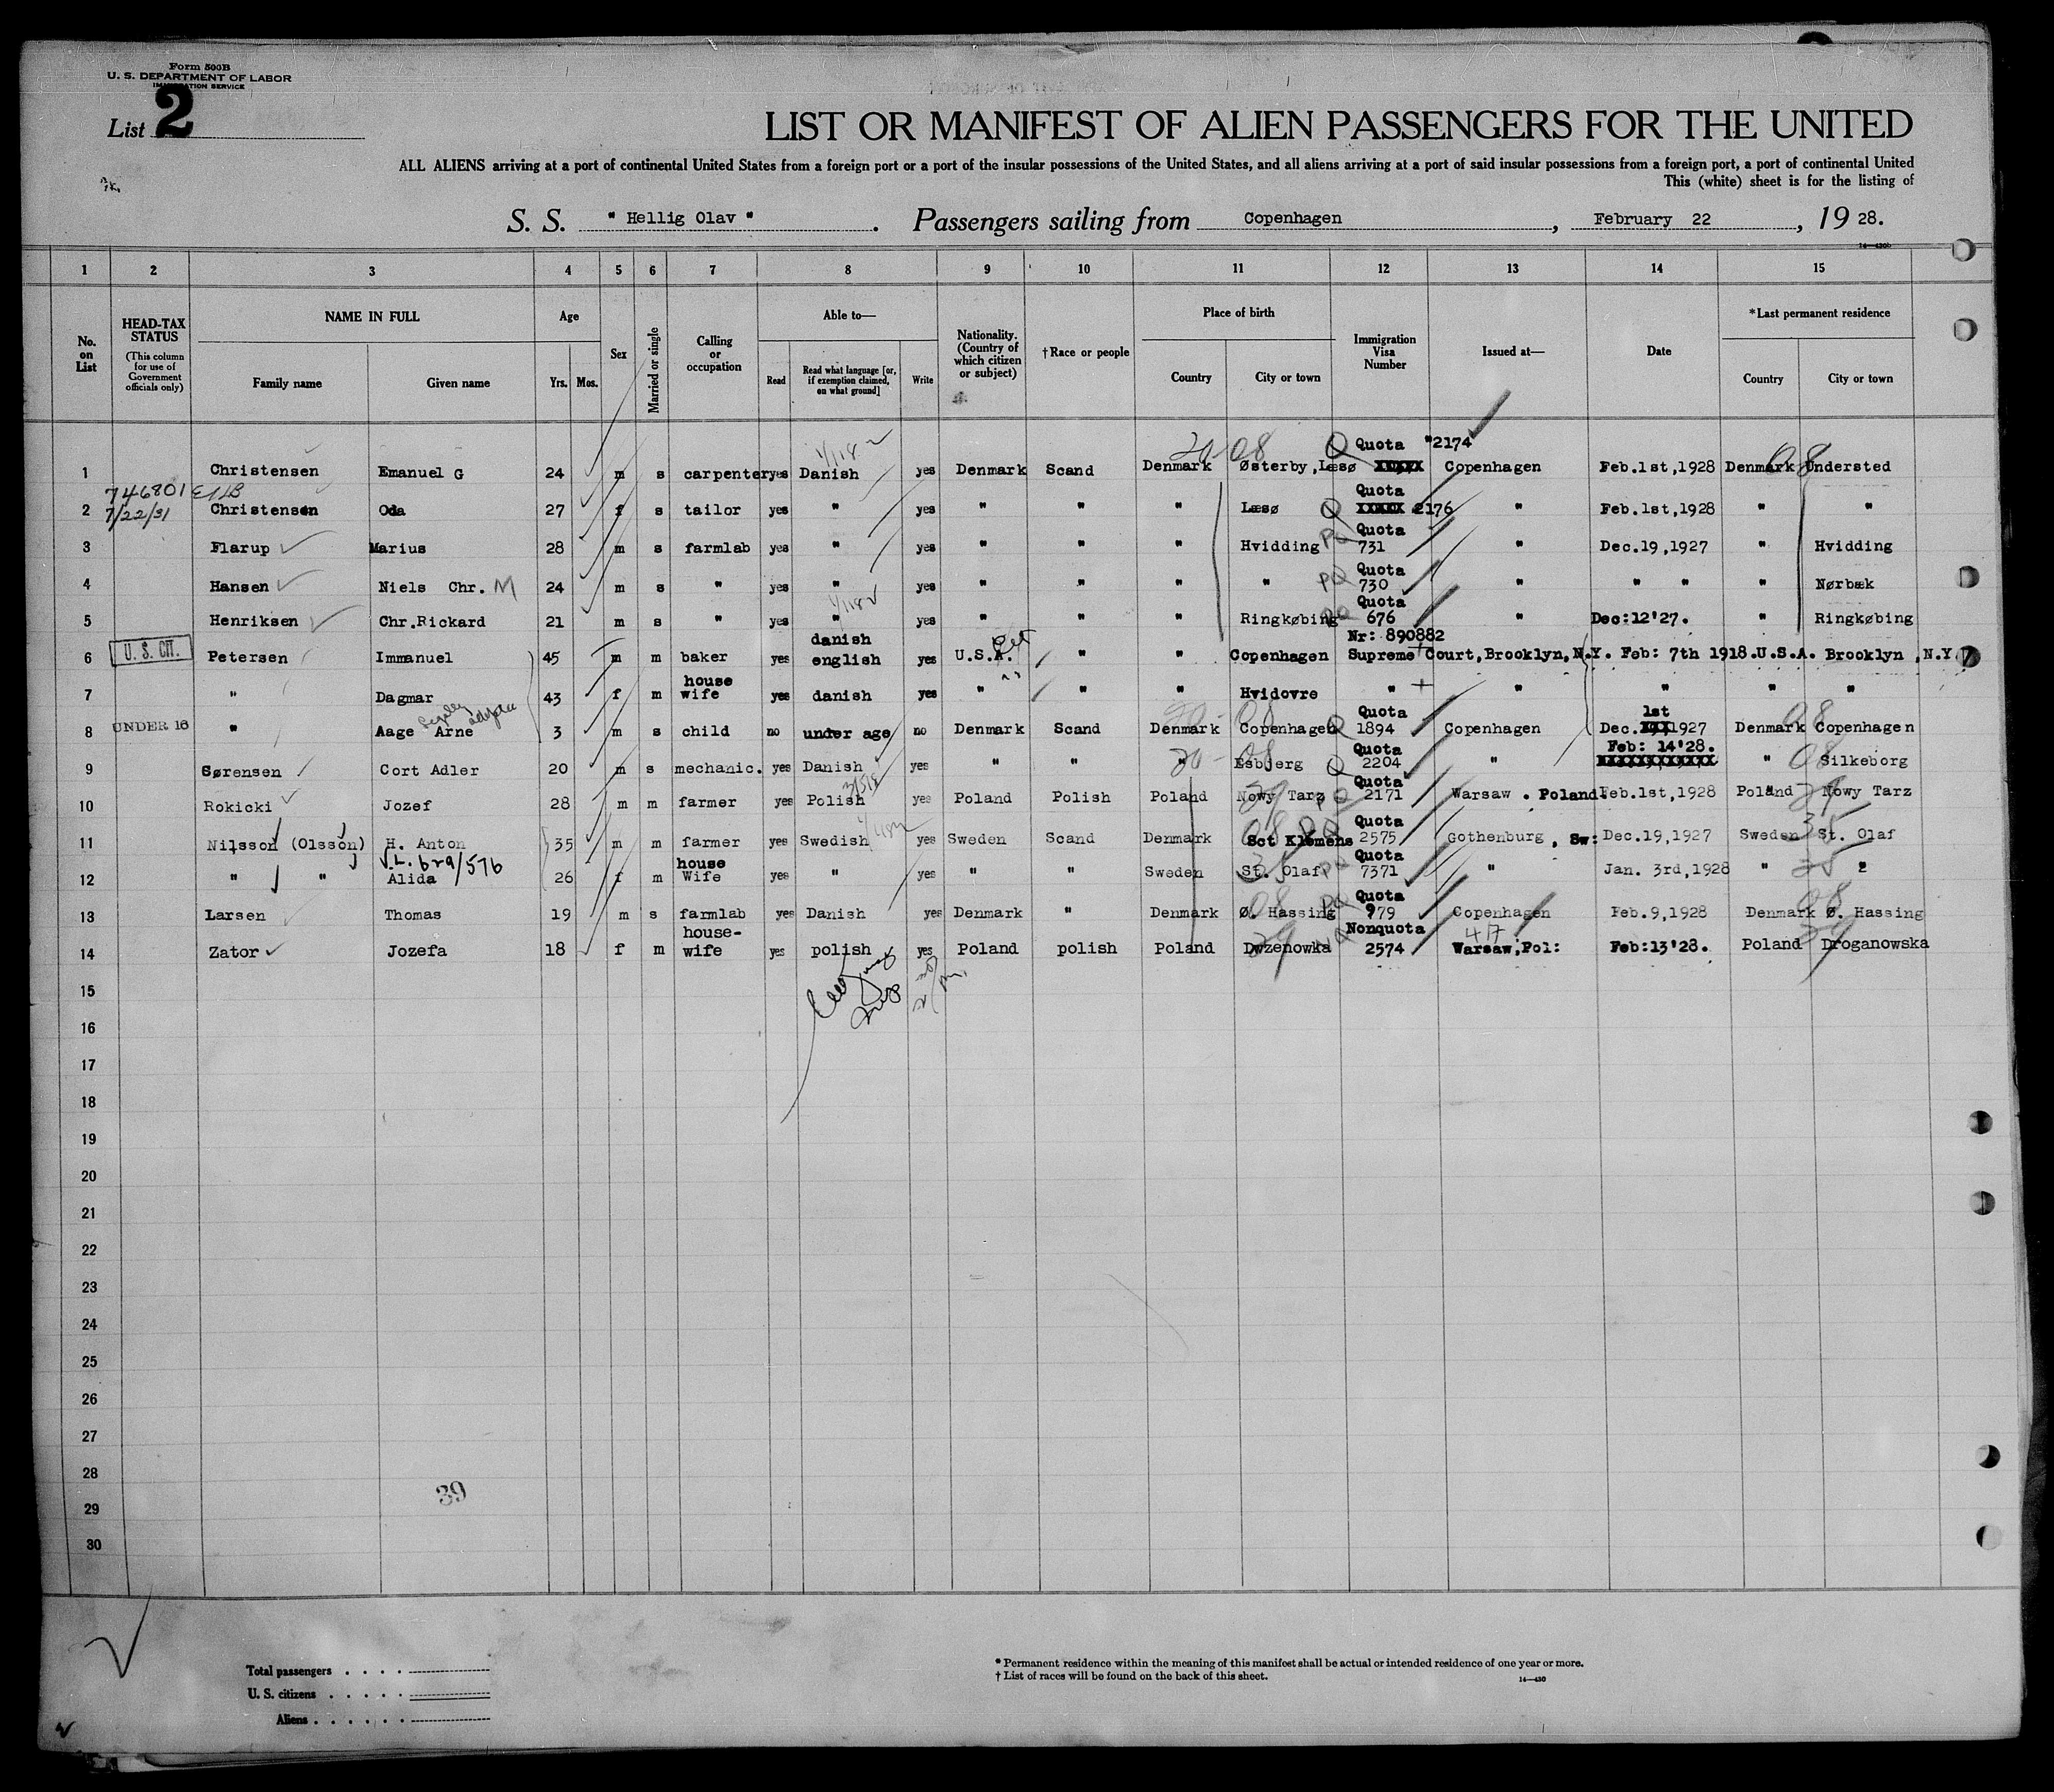 Form 500B
U. S. DEPARTMENT OF LABOR
IMMIGRATION SERVICE
List 2
LIST OR MANIFEST OF ALIEN PASSENGERS FOR THE UNITED
ALL ALIENS arriving at a port of continental United States from a foreign port or a port of the insular possessions of the United States, and all aliens arriving at a port of said insular possessions from a foreign port, a port of continental United
This (white) sheet is for the listing of
S. S. " Hellig Olav " . Passengers sailing from Copenhagen , February 22 , 19 28.
1 2 3 4 5 6 7 8 9 10 11 12 13 14 15
No. on List
HEAD-TAX STATUS (This column for use of Government officials only)
NAME IN FULL Family name Given name
Age Yrs. Mos.
Sex
Married or single
Calling or occupation
Able to— Read Read what language [or, if exemption claimed, on what ground] Write
Nationality. (Country of which citizen or subject)
†Race or people
Place of birth Country City or town
Immigration Visa Number
Issued at—
Date
*Last permanent residence Country City or town
Quota "2174
1 Christensen Emanuel G 24 m s carpenter yes Danish yes Denmark Scand Denmark Østerby,Læsø XXXXX Copenhagen Feb.1st,1928 Denmark Understed
746801
Quota
2 7/22/31 Christensen Oda 27 f s tailor yes " yes " " " Læsø XXXXX 2176 " Feb.1st,1928 " "
Quota
3 Flarup Marius 28 m s farmlab yes " yes " " " Hvidding 731 " Dec.19,1927 " Hvidding
Quota
4 Hansen Niels Chr. M 24 m s " yes " yes " " " " 730 " " " " Nørbæk
Quota
5 Henriksen Chr.Rickard 21 m s " yes " yes " " " Ringkøbing 676 " Dec:12'27. " Ringkøbing
danish Nr: 890882
6 U. S. CIT. Petersen Immanuel 45 m m baker yes english yes U.S.A. " " Copenhagen Supreme Court,Brooklyn,N.Y. Feb: 7th 1918.U.S.A. Brooklyn ,N.Y.
house
7 " Dagmar 43 f m wife yes danish yes " " " Hvidovre " " " " "
legally adopted
Quota 1st
8 UNDER 16 " Aage Arne 3 m s child no under age no Denmark Scand Denmark Copenhagen 1894 Copenhagen Dec.XXX1927 Denmark Copenhagen
Quota Feb: 14'28.
9 Sørensen Cort Adler 20 m s mechanic. yes Danish yes " " " Esbjerg 2204 " XXXXXXXXXXXX " Silkeborg
Quota
10 Rokicki Jozef 28 m m farmer yes Polish yes Poland Polish Poland Nowy Tarz 2171 Warsaw . Poland. Feb.1st,1928 Poland Nowy Tarz
Quota
11 Nilsson (Olsson) H. Anton 35 m m farmer yes Swedish yes Sweden Scand Denmark Sct Klemens 2575 Gothenburg , Sw: Dec.19,1927 Sweden St. Olaf
V.L. 629/576
house Quota
12 " " Alida 26 f m Wife yes " yes " " Sweden St. Olaf 7371 " Jan. 3rd,1928 " "
Quota
13 Larsen Thomas 19 m s farmlab yes Danish yes Denmark " Denmark Ø. Hassing 979 Copenhagen Feb.9,1928 Denmark Ø. Hassing
house- Nonquota
14 Zator Jozefa 18 f m wife yes polish yes Poland polish Poland Dwzenowka 2574 Warsaw,Pol: Feb:13'28. Poland Droganowska
15
16
17
18
19
20
21
22
23
24
25
26
27
28
39
29
30
Total passengers . . . .
U. S. citizens . . . . .
Aliens . . . . . .
* Permanent residence within the meaning of this manifest shall be actual or intended residence of one year or more.
† List of races will be found on the back of this sheet.
14—430